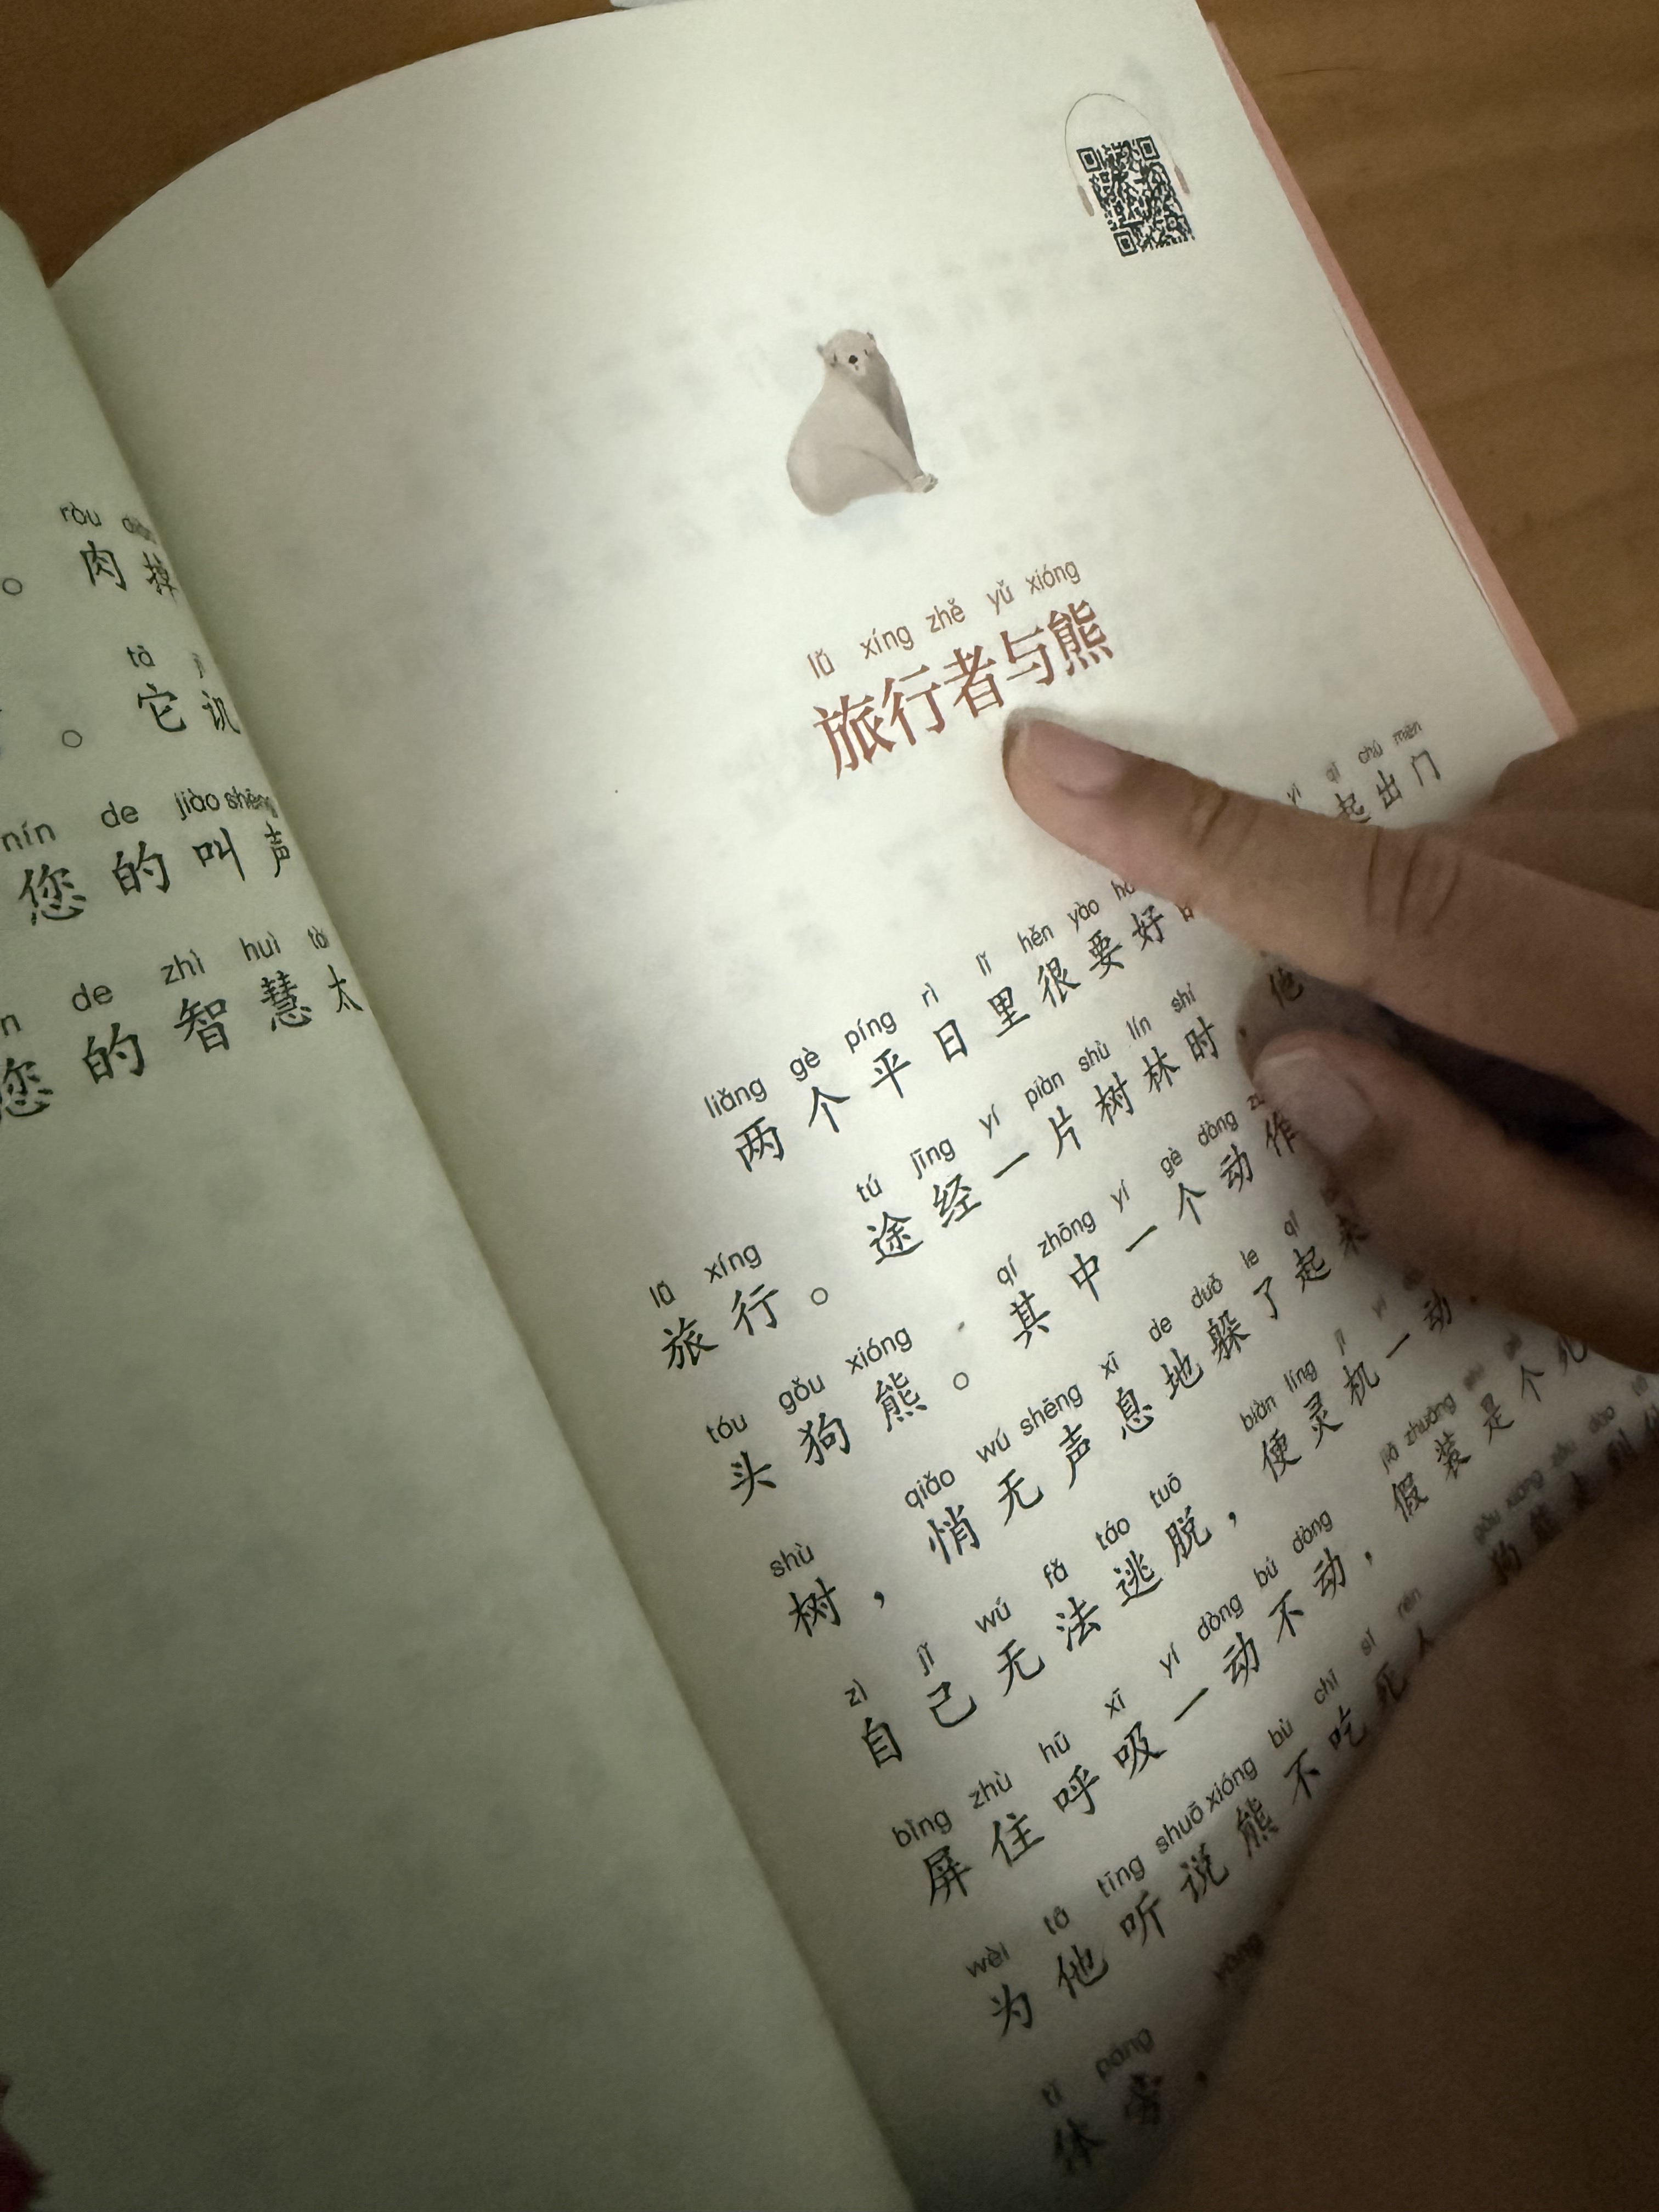 ròu
。 肉 掉
tā
。 它 讥
nín de jiào shēng
您 的 叫 声
de zhì huì
您 的 智 慧 太
lǚ xíng zhě yǔ xióng
旅行者与熊
liǎng gè píng rì lǐ hěn yào qǐ chū mén
两 个 平 日 里 很 要 好 起 出 门
lǚ xíng tú jīng yí piàn shù lín shí
旅 行 。 途 经 一 片 树 林 时 , 他
tóu gǒu xióng qí zhōng yí gè dòng
头 狗 熊 。 其 中 一 个 动 作
shù qiǎo wú shēng xī de duǒ le qǐ
树 , 悄 无 声 息 地 躲 了 起 来
zì jǐ wú fǎ táo tuō biàn líng jī
自 己 无 法 逃 脱 , 便 灵 机 一 动
bǐng zhù hū xī yí dòng bú dòng jiǎ zhuāng
屏 住 呼 吸 一 动 不 动 , 假 装 是 个
wèi tā tīng shuō xióng bù chī sǐ rén gǒu xióng
为 他 听 说 熊 不 吃 死 人 狗 熊
tǐ páng
体 旁 ,